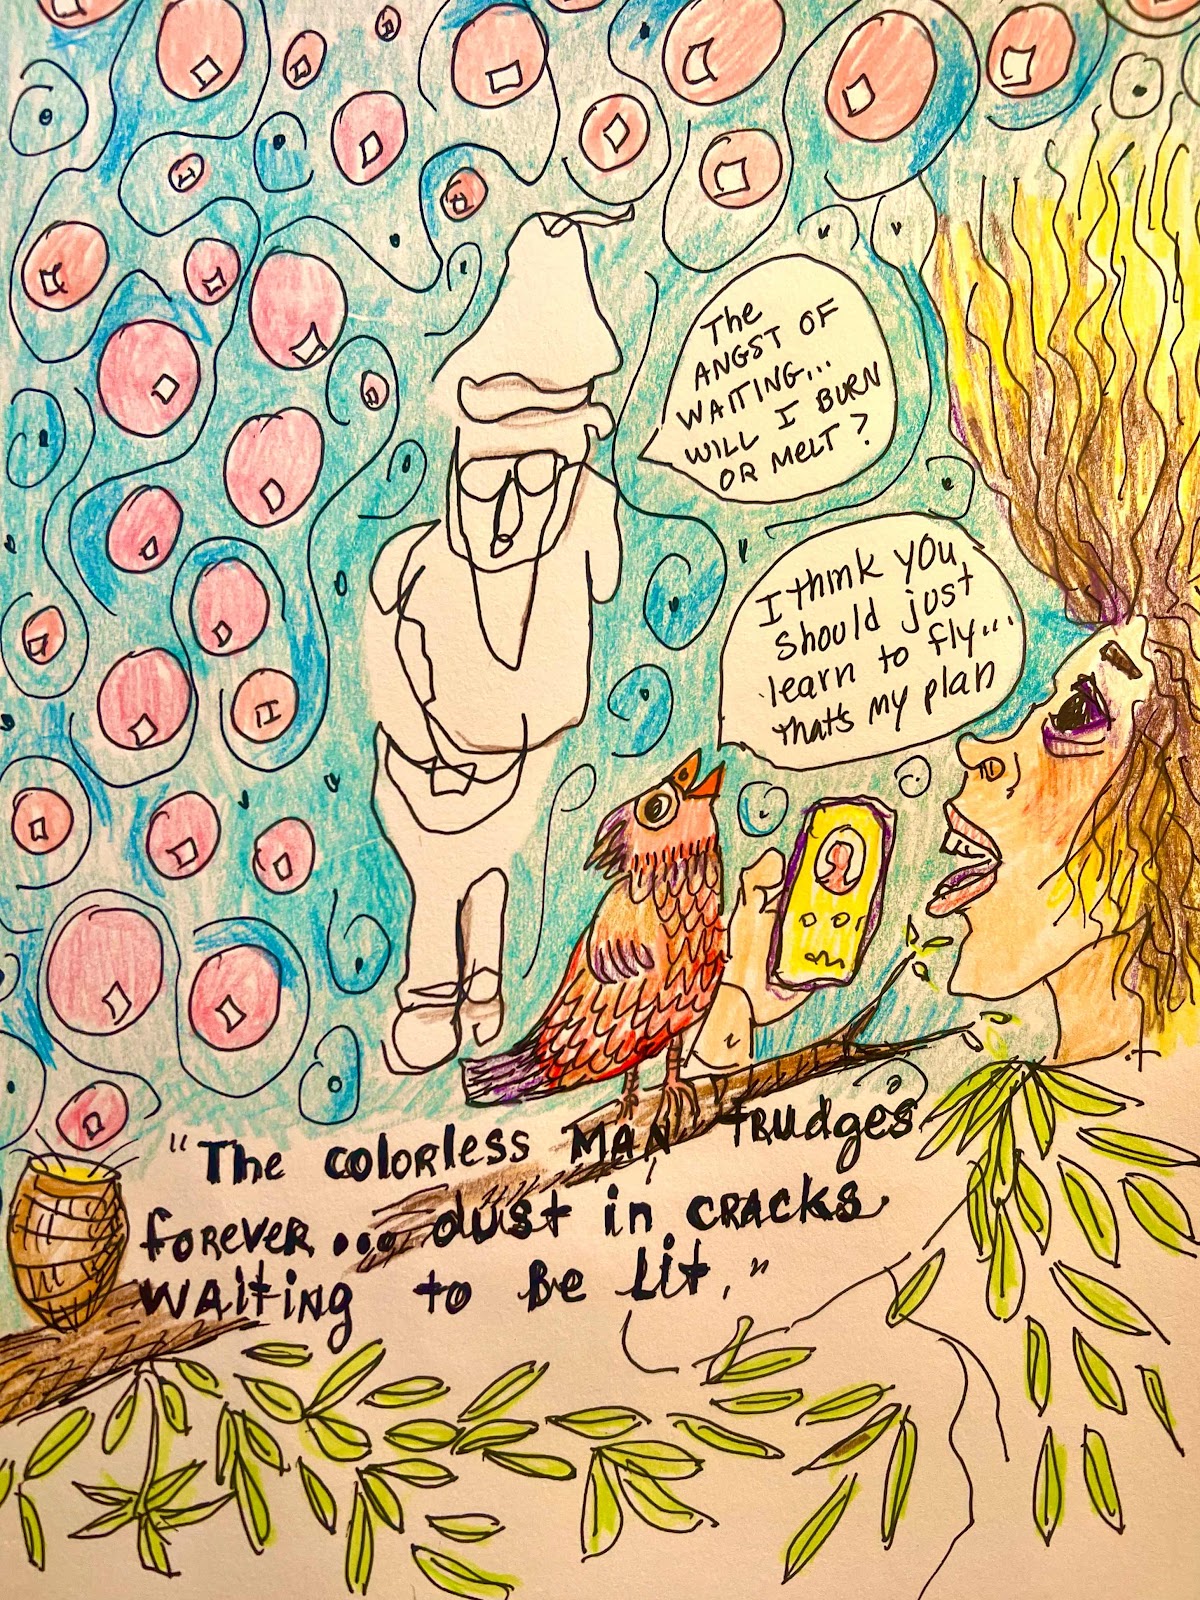 The
ANGST OF
WAITING...
WILL I BURN
OR MELT?
I think you
should just
learn to fly...
that's my plan
"The colorless MAN TRUdges
foREVER... dust in CRACKS
WAITING to Be Lit."